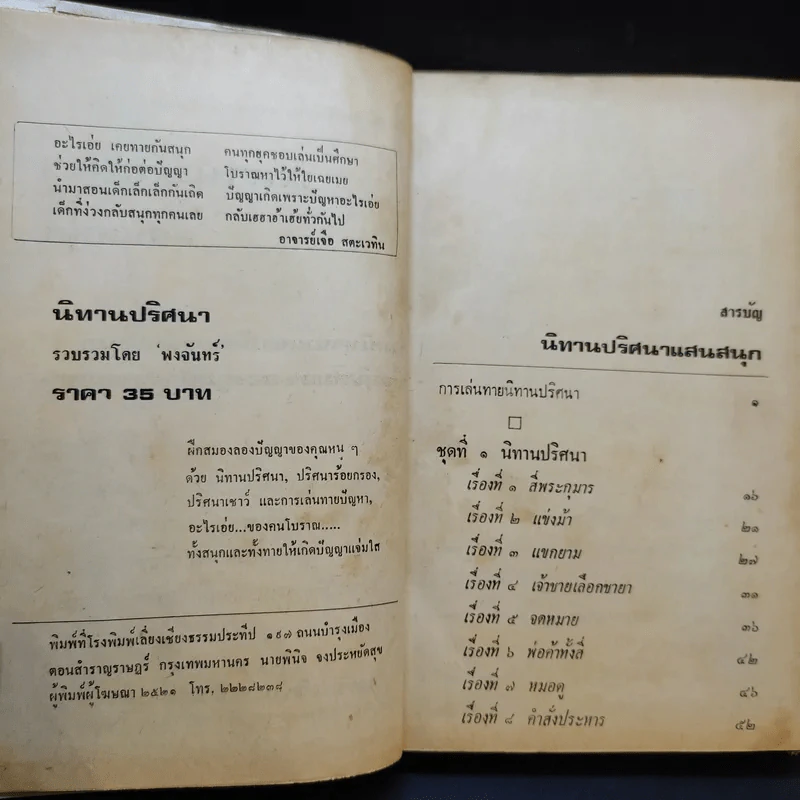 อะไรเอ่ย เคยทายกันสนุก คนทุกยุคชอบเล่นเป็นศึกษา
ช่วยให้คิดให้ก่อต่อปัญญา โบราณหาไว้ให้ใยเฉยเมย
นำมาสอนเด็กเล็กเล็กกันเถิด ปัญญาเกิดเพราะปัญหาอะไรเอ่ย
เด็กที่ง่วงกลับสนุกทุกคนเลย กลับเฮฮาอ้าเฮ้ยทั่วกันไป
อาจารย์เจือ สตะเวทิน
นิทานปริศนา
รวบรวมโดย 'พงจันทร์'
ราคา 35 บาท
ฝึกสมองลองปัญญาของคุณหนู ๆ
ด้วย นิทานปริศนา, ปริศนาร้อยกรอง,
ปริศนาเชาว์ และการเล่นทายปัญหา,
อะไรเอ่ย...ของคนโบราณ.....
ทั้งสนุกและทั้งทายให้เกิดปัญญาแจ่มใส
พิมพ์ที่โรงพิมพ์เลี่ยงเซียงธรรมประทีป ๑๙๗ ถนนบำรุงเมือง
ตอนสำราญราษฎร์ กรุงเทพมหานคร นายพินิจ จงประหยัดสุข
ผู้พิมพ์ผู้โฆษณา ๒๕๒๑ โทร. ๒๒๒๘๒๓๘
สารบัญ
นิทานปริศนาแสนสนุก
การเล่นทายนิทานปริศนา ๑
ชุดที่ ๑ นิทานปริศนา
เรื่องที่ ๑ สี่พระกุมาร ๑๖
เรื่องที่ ๒ แข่งม้า ๒๑
เรื่องที่ ๓ แขกยาม ๒๗
เรื่องที่ ๔ เจ้าชายเลือกชายา ๓๑
เรื่องที่ ๕ จดหมาย ๓๖
เรื่องที่ ๖ พ่อค้าทั้งสี่ ๔๒
เรื่องที่ ๗ หมอดู ๔๖
เรื่องที่ ๘ คำสั่งประหาร ๕๒